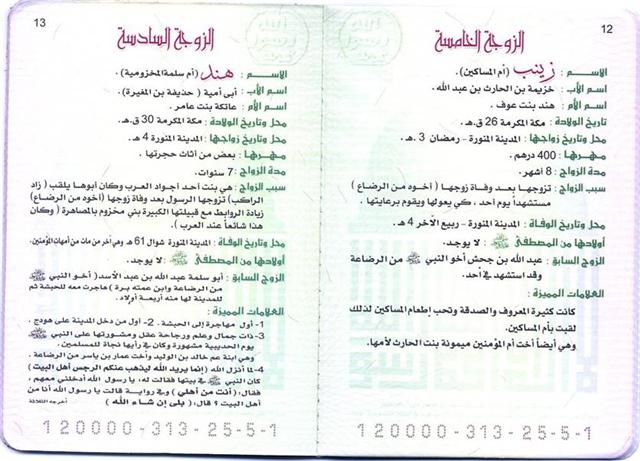 12
الزوجة الخامسة
الاسم : زينب (أم المساكين).
اسم الأب : خزيمة بن الحارث بن عبد الله.
اسم الأم : هند بنت عوف.
تاريخ الولادة : مكة المكرمة 26 ق.هـ.
محل وتاريخ زواجها : المدينة المنورة - رمضان 3 .هـ.
مهرها : 400 درهم.
مدة الزواج : 8 أشهر.
سبب الزواج : تزوجها بعد وفاة زوجها (أخوه من الرضاع)
مستشهداً يوم أحد ، كي يعولها ويقوم برعايتها.
محل وتاريخ الوفاة : المدينة المنورة - ربيع الآخر 4 هـ.
أولادها من المصطفى ﷺ : لا يوجد.
الزوج السابق : عبد الله بن جحش أخو النبي ﷺ من الرضاعة
وقد استشهد في أحد.
العلامات المميزة :
كانت كثيرة المعروف والصدقة وتحب إطعام المساكين لذلك
لقبت بأم المساكين.
وهي أيضاً أخت أم المؤمنين ميمونة بنت الحارث لأمها.
120000-313-25-5-1
13
الزوجة السادسة
الاسم : هند (أم سلمة المخزومية).
اسم الأب : أبي أمية ( حذيفة بن المغيرة).
اسم الأم : عاتكة بنت عامر.
محل وتاريخ الولادة : مكة المكرمة 30 ق.هـ.
محل وتاريخ زواجها : المدينة المنورة 4 هـ.
مهرها : بعض من أثاث حجرتها.
مدة الزواج : 7 سنوات.
سبب الزواج : هي بنت أحد أجواد العرب وكان أبوها يلقب ( زاد
الراكب) تزوجها الرسول بعد وفاة زوجها (أخوه من الرضاع)
زيادة الروابط مع قبيلتها الكبيرة بني مخزوم بالمصاهرة ( وكان
هذا شائعاً عند العرب ).
محل وتاريخ الوفاة : المدينة المنورة شوال 61 هـ وهي آخر من مات من أمهات المؤمنين.
أولادها من المصطفى ﷺ : لا يوجد.
الزوج السابق : أبو سلمة عبد الله بن عبد الأسد (أخو النبي ﷺ
من الرضاعة وابن عمته برة ) هاجرت معه للحبشة ثم
للمدينة لها منه أربعة أولاد.
العلامات المميزة :
1- أول مهاجرة إلى الحبشة . 2- أول من دخل المدينة على هودج .
3- ذات جمال وعلم ورجاحة عقل ومشورتها على النبي ﷺ
يوم الحديبية مشهورة وكان في رأيها نجاة للمسلمين.
وهي ابنة عم خالد بن الوليد وأخت عمار بن ياسر من الرضاعة.
4- لما أنزل الله (إنما يريد الله ليذهب عنكم الرجس أهل البيت )
كان النبي ﷺ في بيتها فقالت له، يا رسول الله أدخلني معهم ،
فقال: (أنت من أهلي ) وفي رواية قالت يا رسول الله أنا من
أهل البيت ؟ قال: ( بلى إن شاء الله )
120000-313-25-5-1